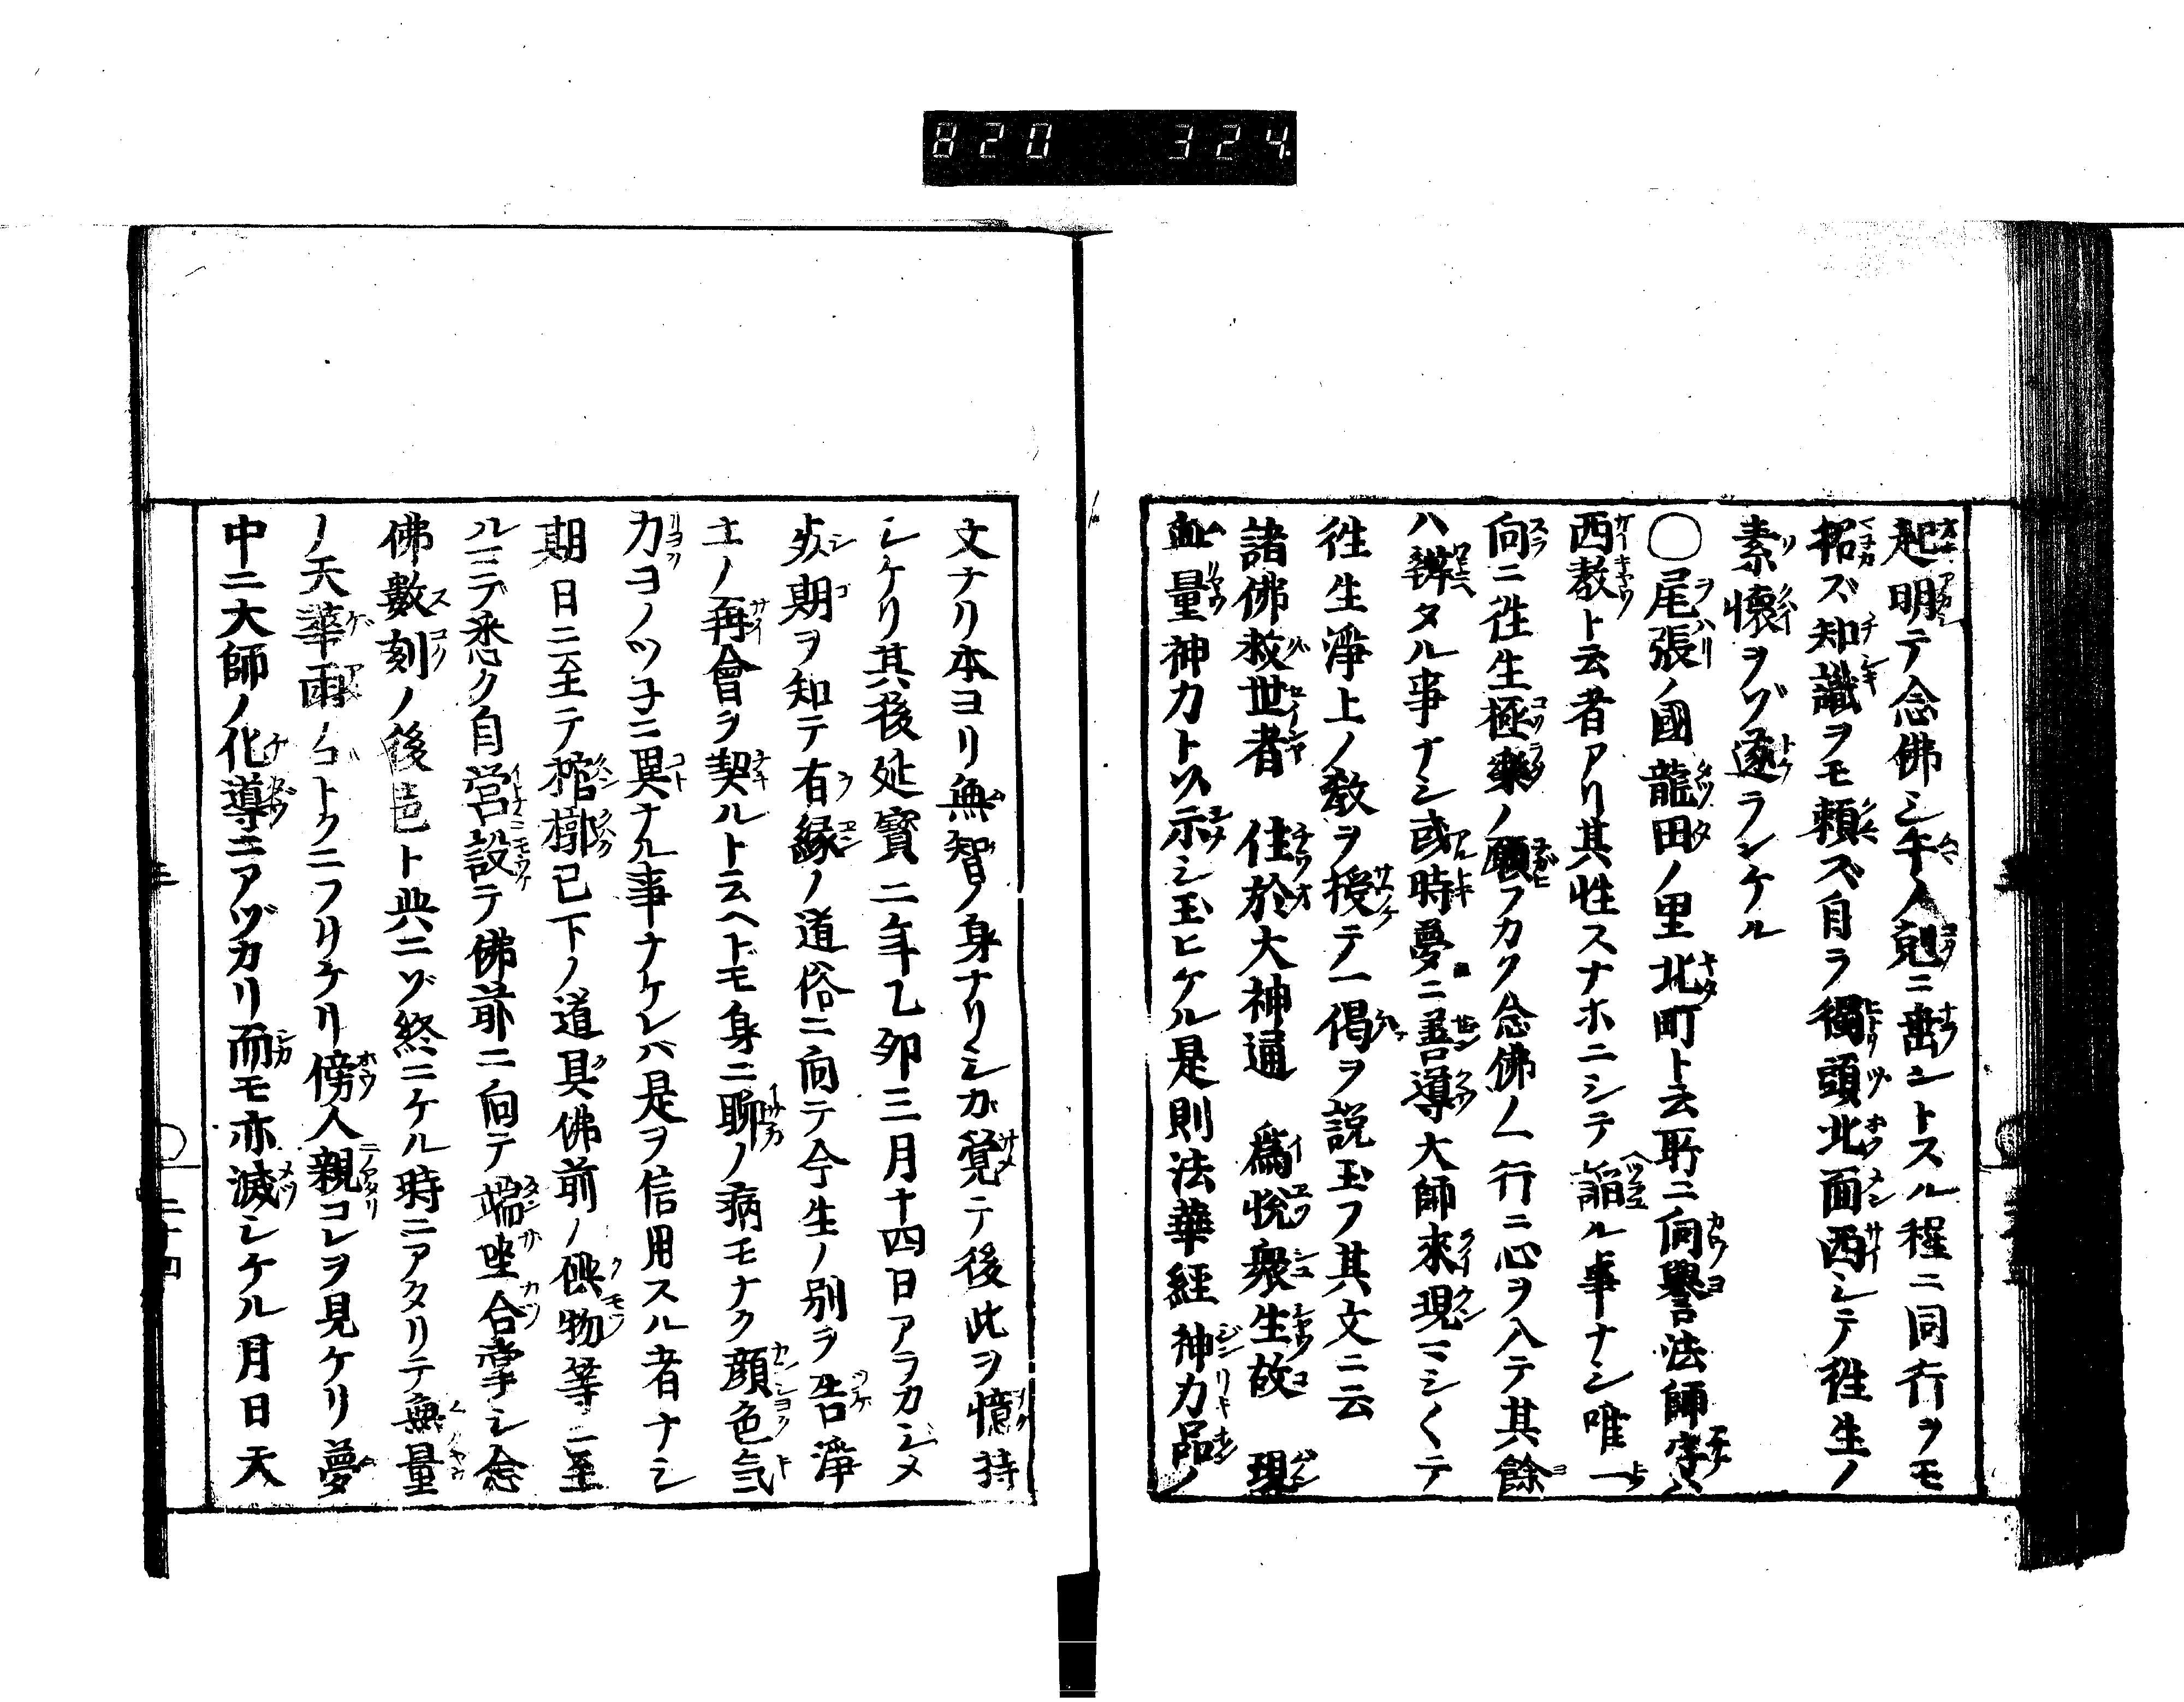 820 324
起明テ念佛シ午ノ剋ニ埀ントスル程ニ同行ヲモ
招ズ知識ヲモ頼ズ自ラ獨頭北面西シテ徃生ノ
素懷ヲゾ遂ランケル
○尾張ノ國龍田ノ里北町ト云所ニ向譽法師字ハ
西教ト云者アリ其性スナホニシテ謟ル事ナシ唯一
向ニ徃生極樂ノ願フカク念佛ノ一行ニ心ヲ入テ其餘
ハ辨タル事ナシ或時夢ニ善導大師來現マシ〱テ
徃生淨土ノ教ヲ授テ一偈ヲ説玉フ其文ニ云
諸佛救世者 住於大神通 爲悅衆生故 現
無量神力ト示シ玉ヒケル是則法華經神力品ノ
文ナリ本ヨリ無智ノ身ナリシガ覚テ後此ヲ憶持
シケリ其後延寶二年乙卯三月十四日アラカシメ
死期ヲ知テ有縁ノ道俗ニ向テ今生ノ別ヲ告淨
土ノ再會ヲ契ルト云ヘドモ身ニ聊ノ病モナク顔色気
力ヨノツ子ニ異ナル事ナケレバ是ヲ信用スル者ナシ
期日ニ至テ棺槨已下ノ道具佛前ノ供物等ニ至
ルマデ悉ク自営設テ佛前ニ向テ端坐合掌シ念
佛數刻ノ後邑ト共ニゾ終ニケル時ニアタリテ無量
ノ天華雨ノコトクニフリケリ傍人親コレヲ見ケリ夢
中ニ大師ノ化導ニアヅカリ而モ亦滅シケル月日天
二十四